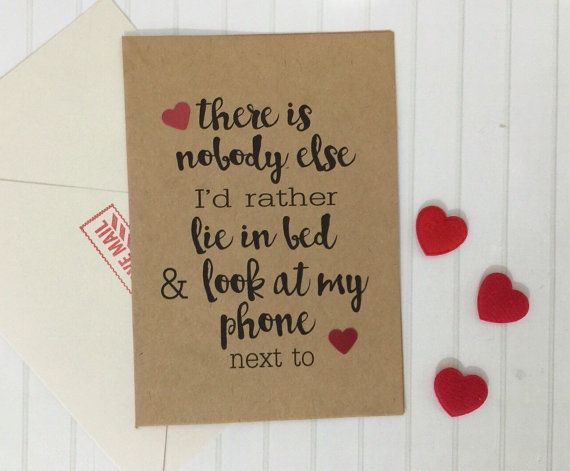 there is
nobody else
I'd rather
lie in bed
& look at my
phone
next to
VE MAIL